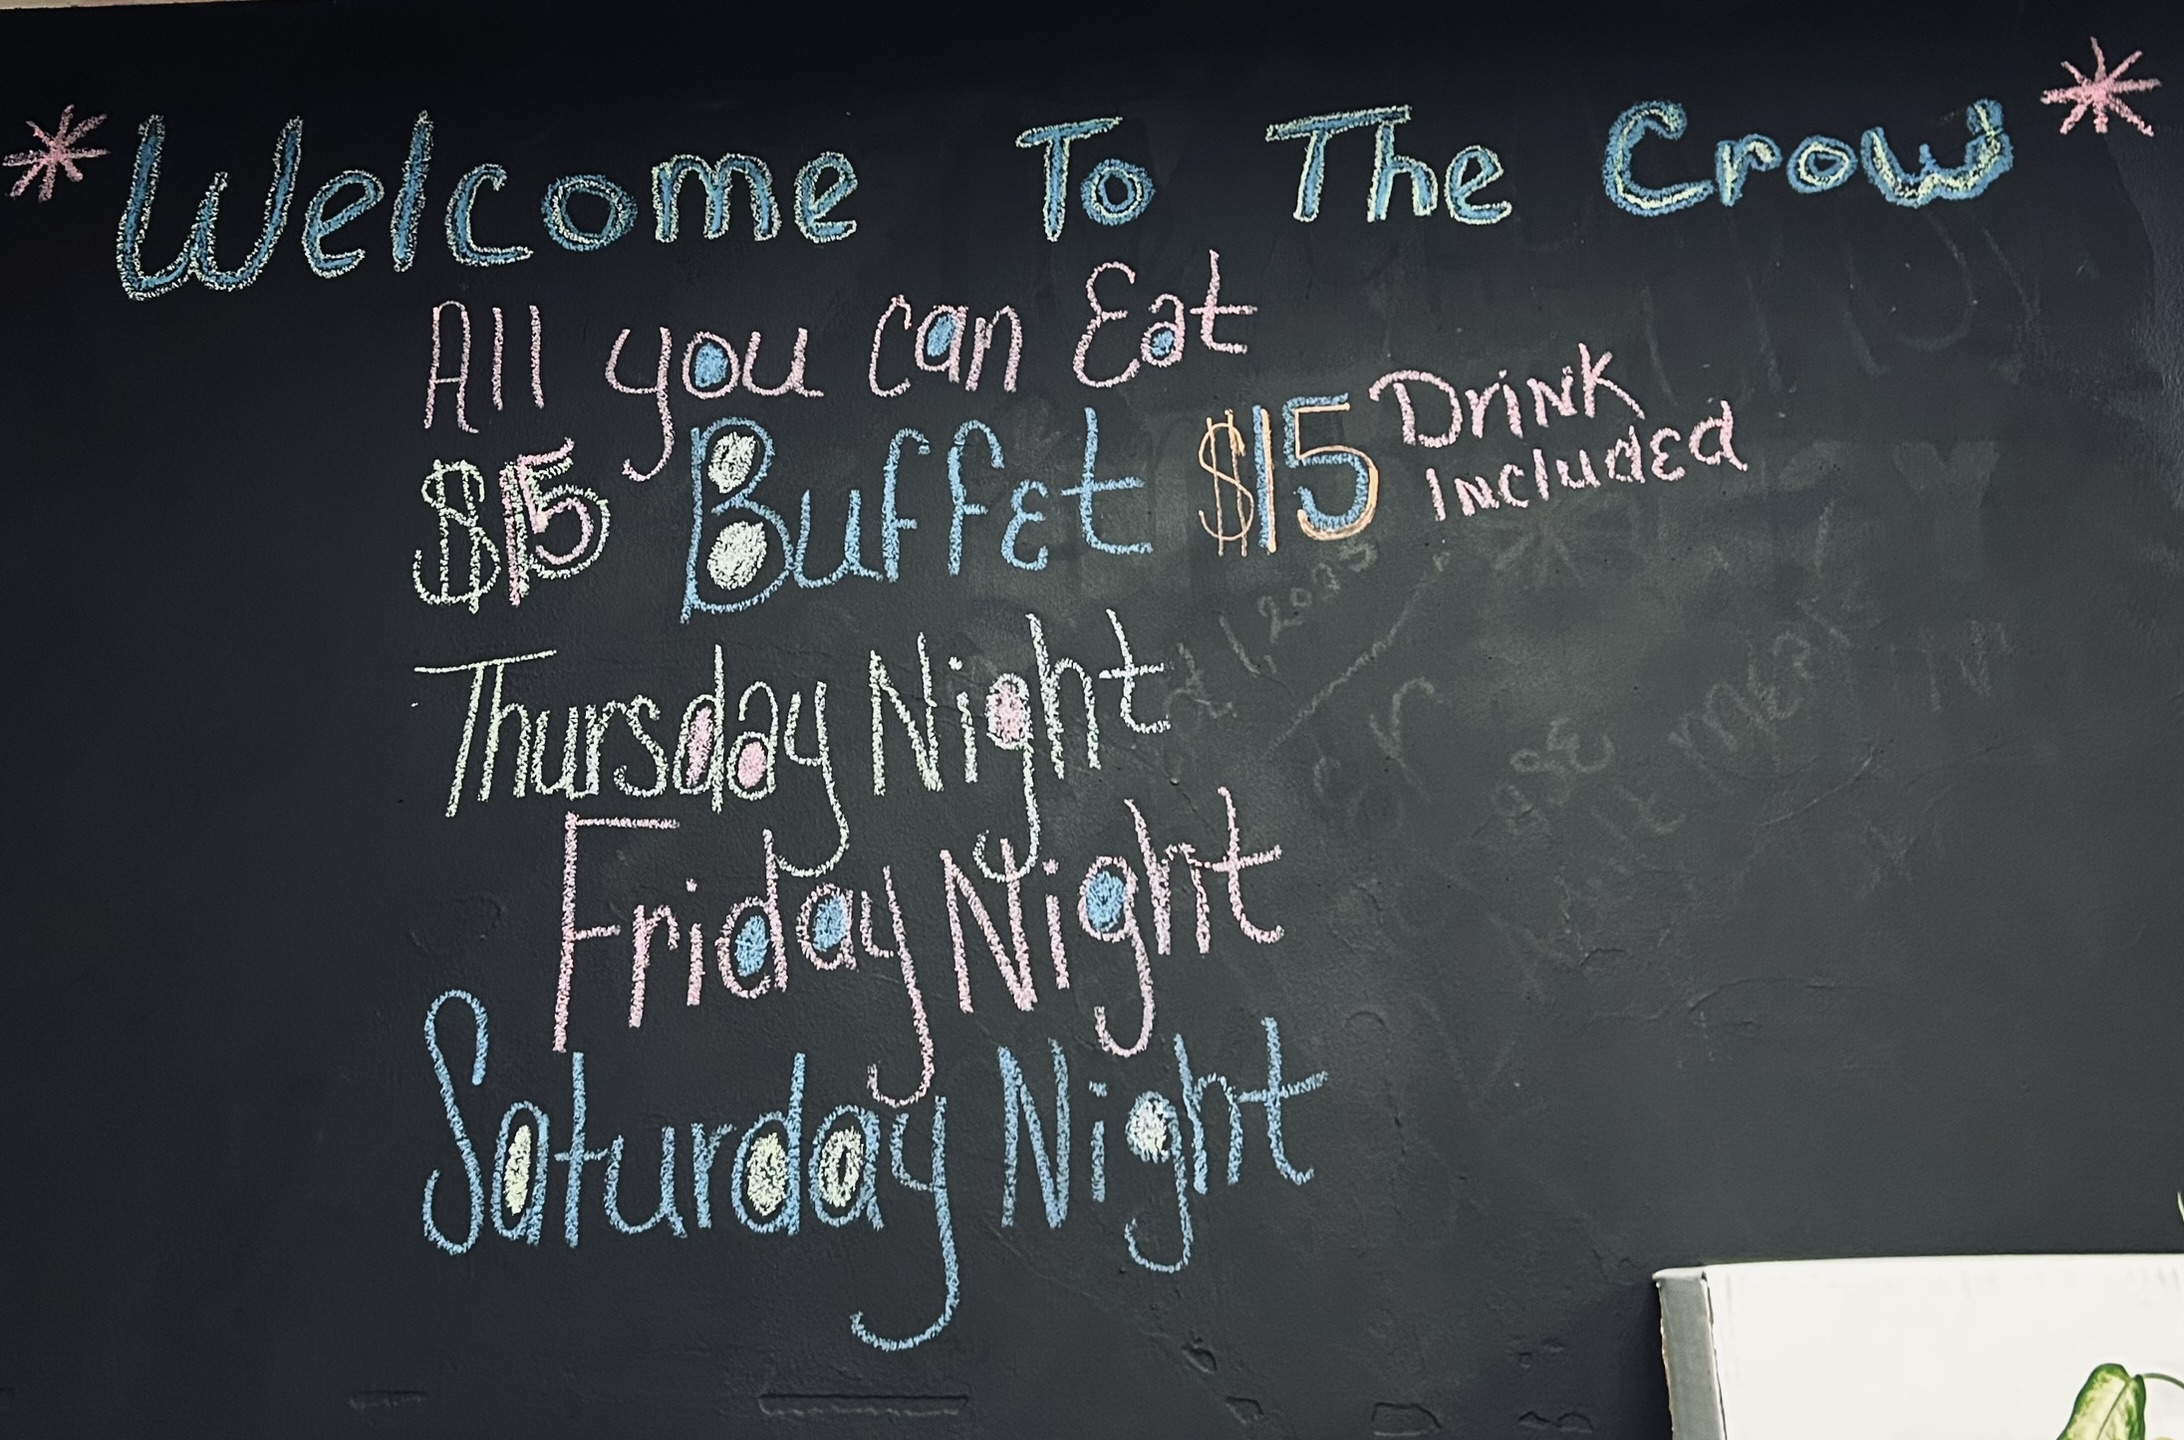 *Welcome To The Crow*
All you can Eat
$15 Buffet $15 Drink
Included
Thursday Night
Friday Night
Saturday Night